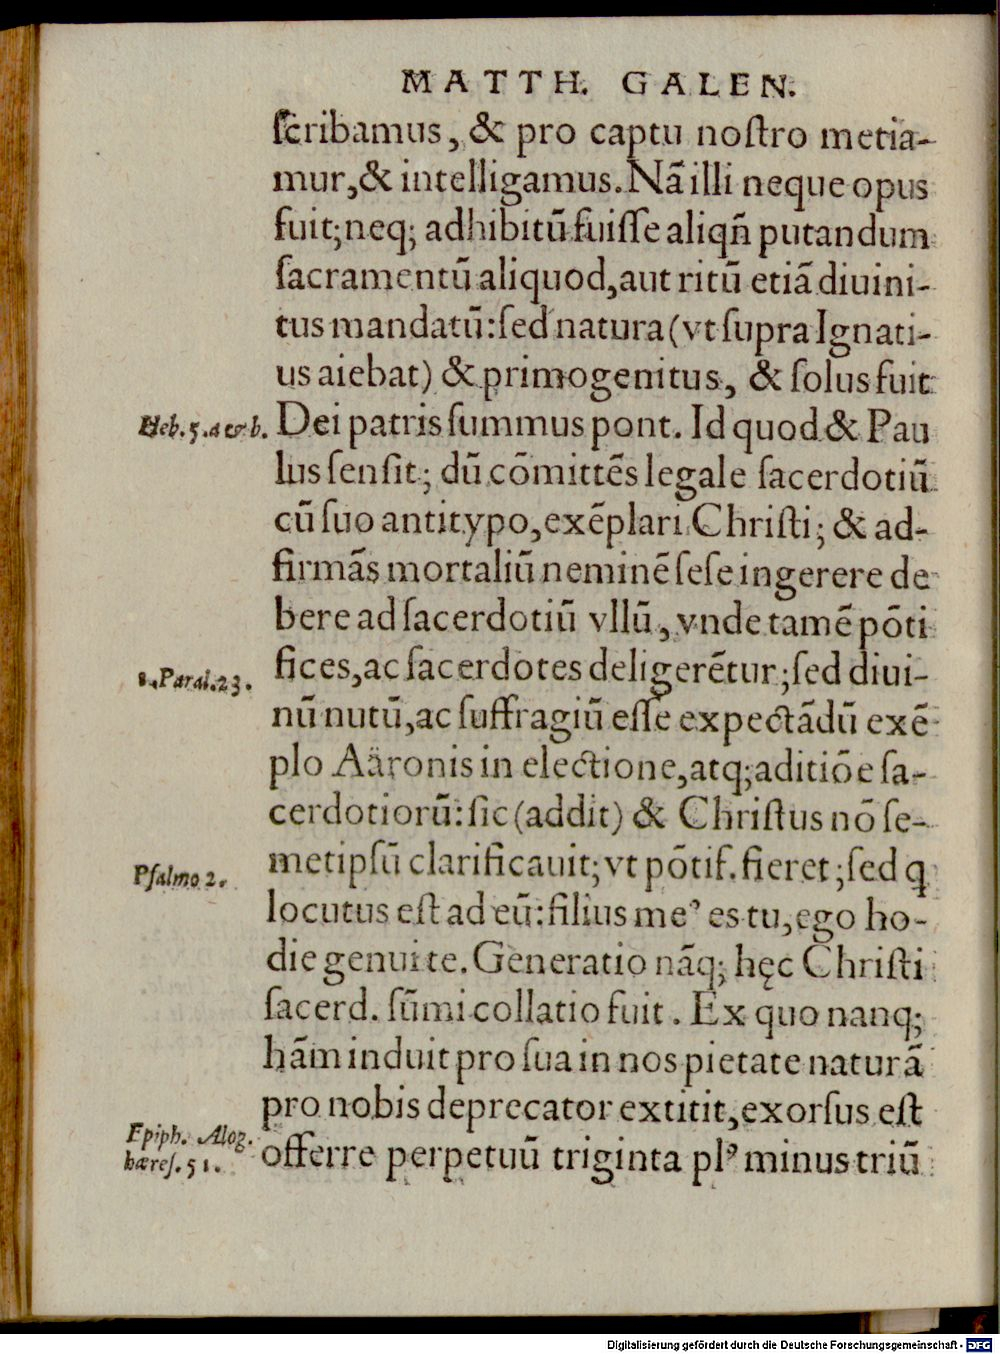 MATTH. GALEN.
ſcribamus, & pro captu noſtro metia-
mur, & intelligamus. Nã illi neque opus
fuit; neq; adhibitũ fuiſſe aliqñ putandum
ſacramentũ aliquod, aut ritũ etiã diuini-
tus mandatũ: ſed natura (vt ſupra Ignati-
us aiebat) & primogenitus, & ſolus fuit
Heb. 5. a & b.
Dei patris ſummus pont. Id quod & Pau
lus ſenſit; dũ cõmittẽs legale ſacerdotiũ
cũ ſuo antitypo, exẽplari Chriſti; & ad-
firmãs mortaliũ neminẽ ſeſe ingerere de
bere ad ſacerdotiũ vllũ, vnde tamẽ põti
1. Paral. 23.
fices, ac ſacerdotes deligerẽtur; ſed diui-
nũ nutũ, ac ſuffragiũ eſſe expectãdũ exẽ
plo Aäronis in electione, atq; aditiõe ſa-
cerdotiorũ: ſic (addit) & Chriſtus nõ ſe-
Pſalmo 2.
metipſũ clarificauit; vt põtif. fieret; ſed q
locutus eſt ad eũ: filius me⁹ es tu, ego ho-
die genui te. Generatio nãq; hęc Chriſti
ſacerd. ſũmi collatio fuit. Ex quo nanq;
hãm induit pro ſua in nos pietate naturã
pro nobis deprecator extitit, exorſus eſt
Epiph. Alog.
hæreſ. 51.
offerre perpetuũ triginta pl⁹ minus triũ
Digitalisierung gefördert durch die Deutsche Forschungsgemeinschaft - DFG